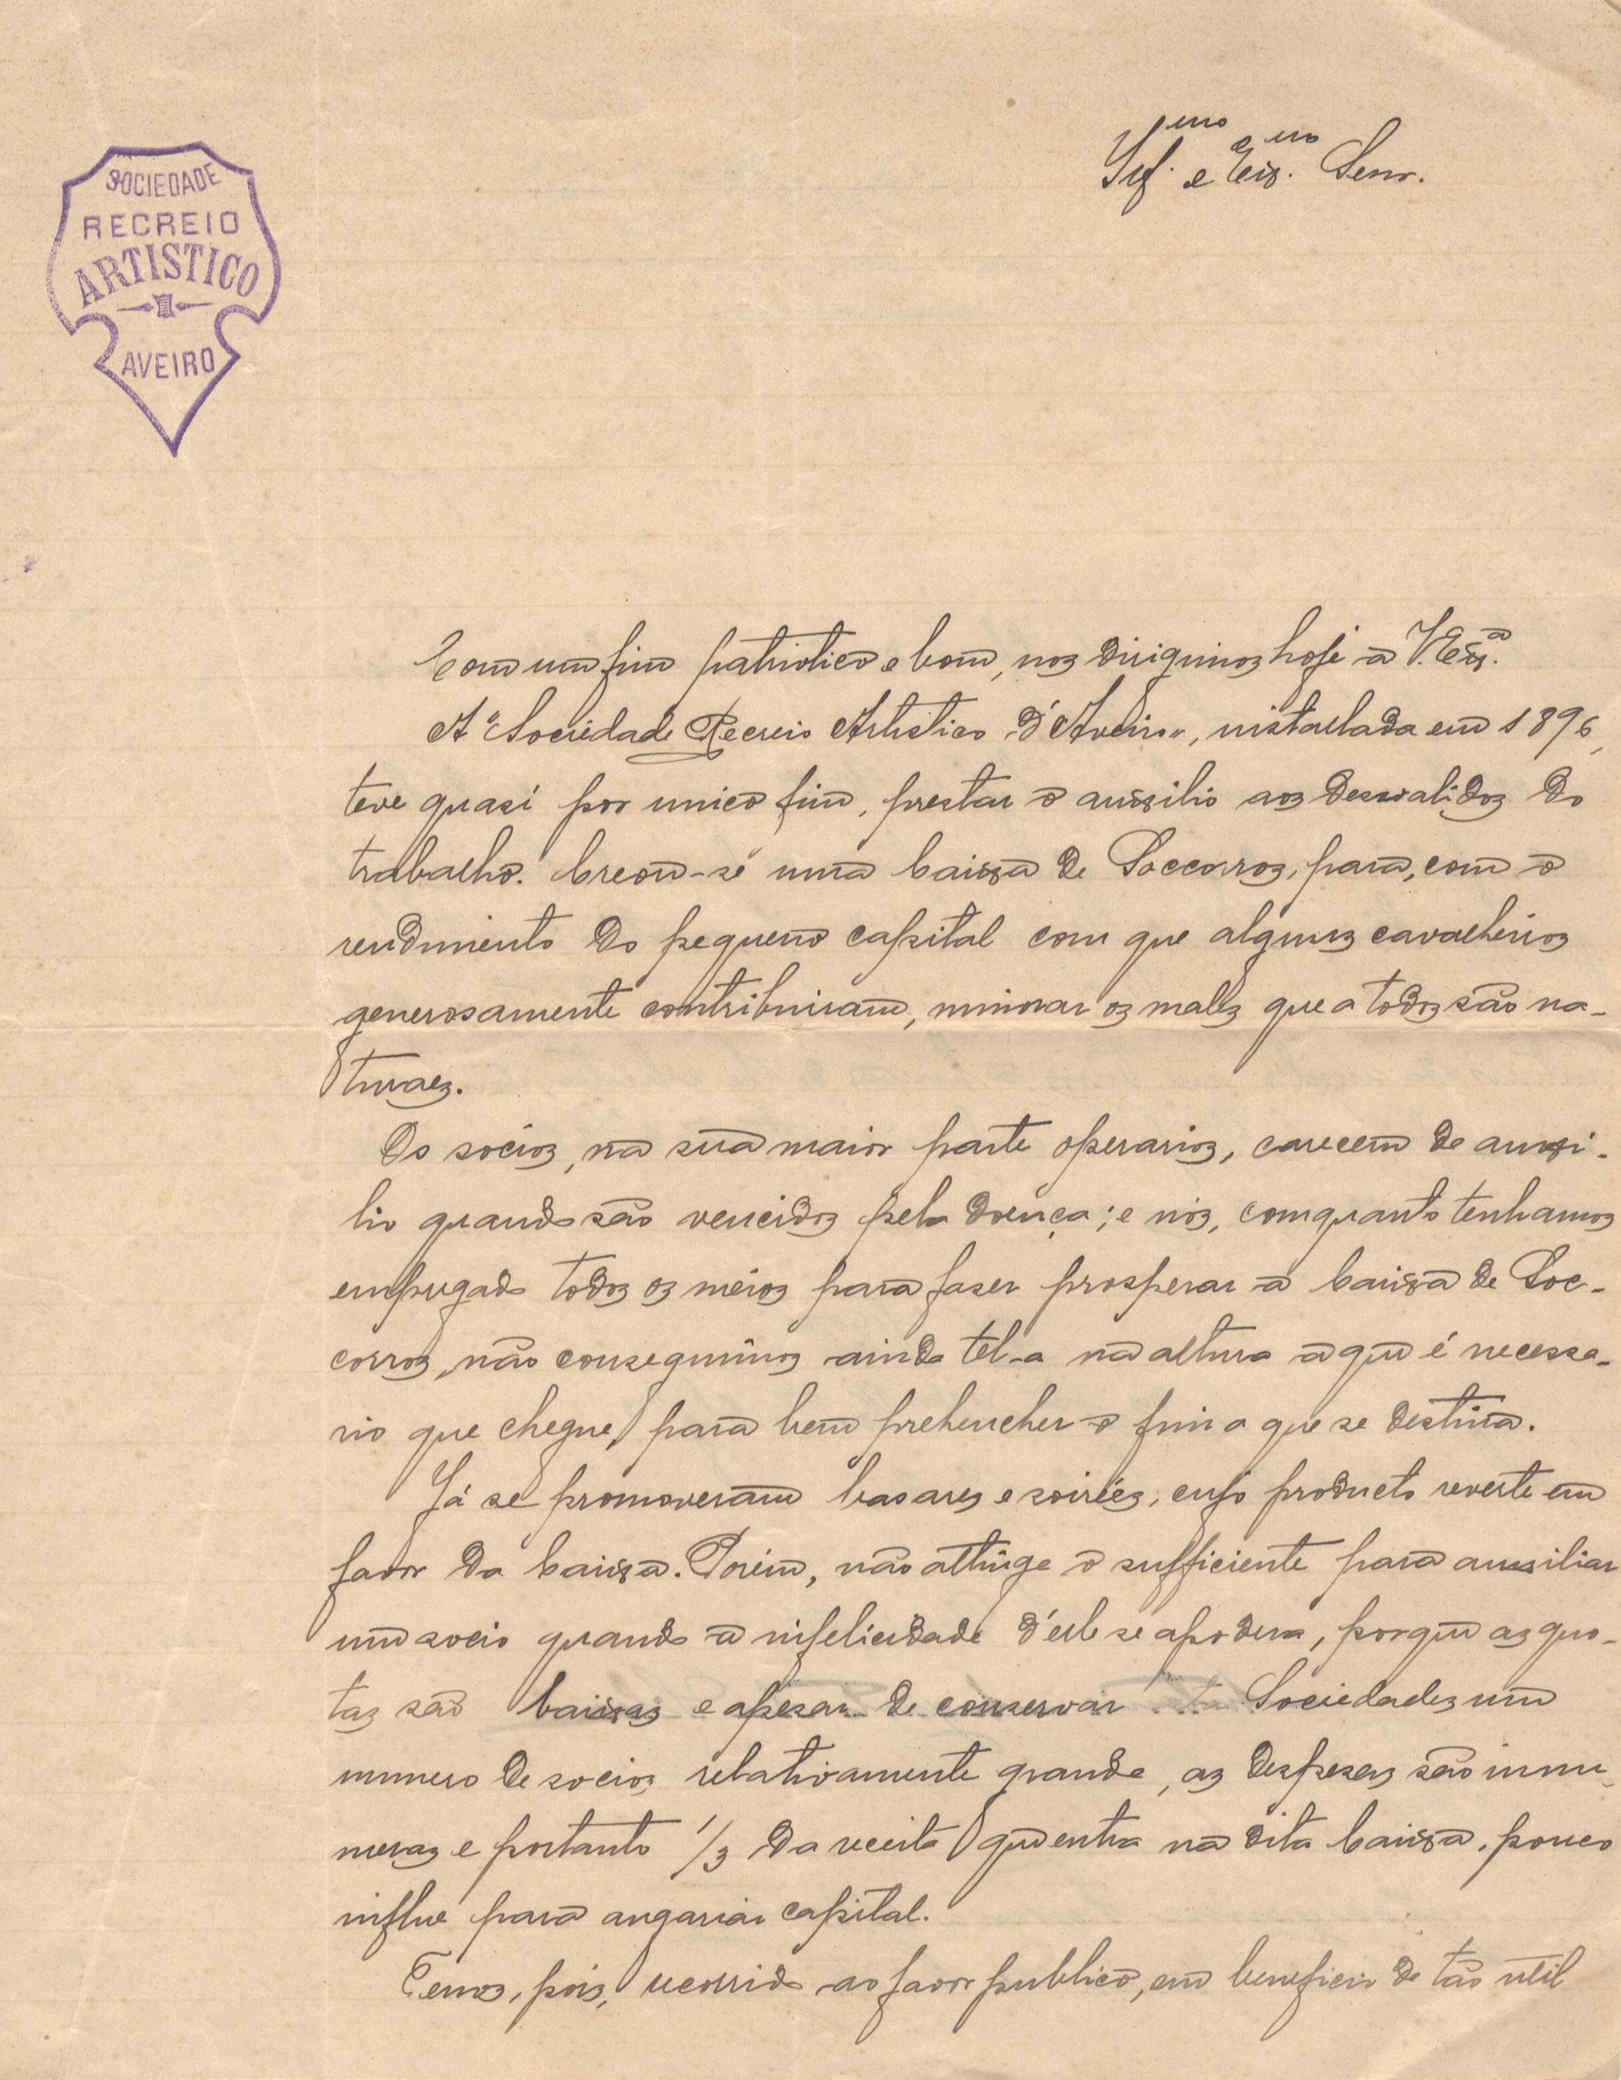 SOCIEDADE
RECREIO
ARTISTICO
AVEIRO
Ill.mo e Ex.mo Senr.
Com um fim patriotico e bom, nos dirigimos hoje a V. Ex.ª
A "Sociedade Recreio Artistico d'Aveiro", installada em 1896,
teve quasi por unico fim, prestar o auxilio aos desvalidos do
trabalho. Creou-se uma Caixa de Soccorros, para, com o
rendimento do pequeno capital com que alguns cavalheiros
generosamente contribuiram, minorar os males que a todos são na-
turaes.
Os socios, na sua maior parte operarios, carecem de auxi-
lio quando são vencidos pela doença; e nós, comquanto tenhamos
empregado todos os meios para faser prosperar a Caixa de Soc-
corros, não conseguimos ainda tel-a na altura a que é necessa-
rio que chegue, para bem prehencher o fim a que se destina.
Já se promoveram basares e soirées, cujo producto reverte em
favor da Caixa. Porém, não attinge o sufficiente para auxiliar
um socio quando a infelicidade d'elle se apodera, porque as quo-
tas são baixas e apesar de conservar Sociedades um
numero de socios relativamente grande, as despesas são innu-
meras e portanto 1/3 da receita que entra na dita Caixa, pouco
influe para angariar capital.
Temos, pois, recorrido ao favor publico, em beneficio de tão util